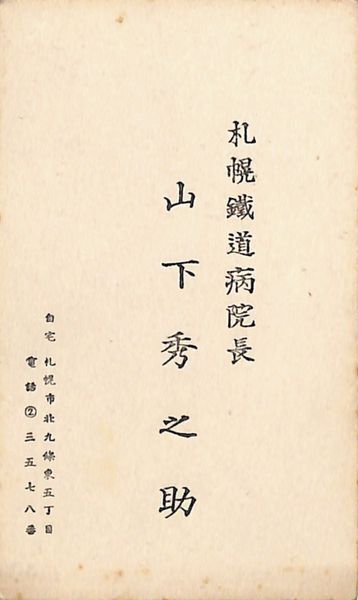 札幌鐵道病院長
山下秀之助
自宅 札幌市北九條東五丁目
電話②三五七八番